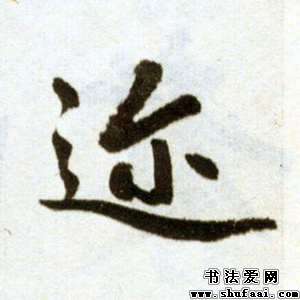 迩
书法爱网
www.shufaai.com